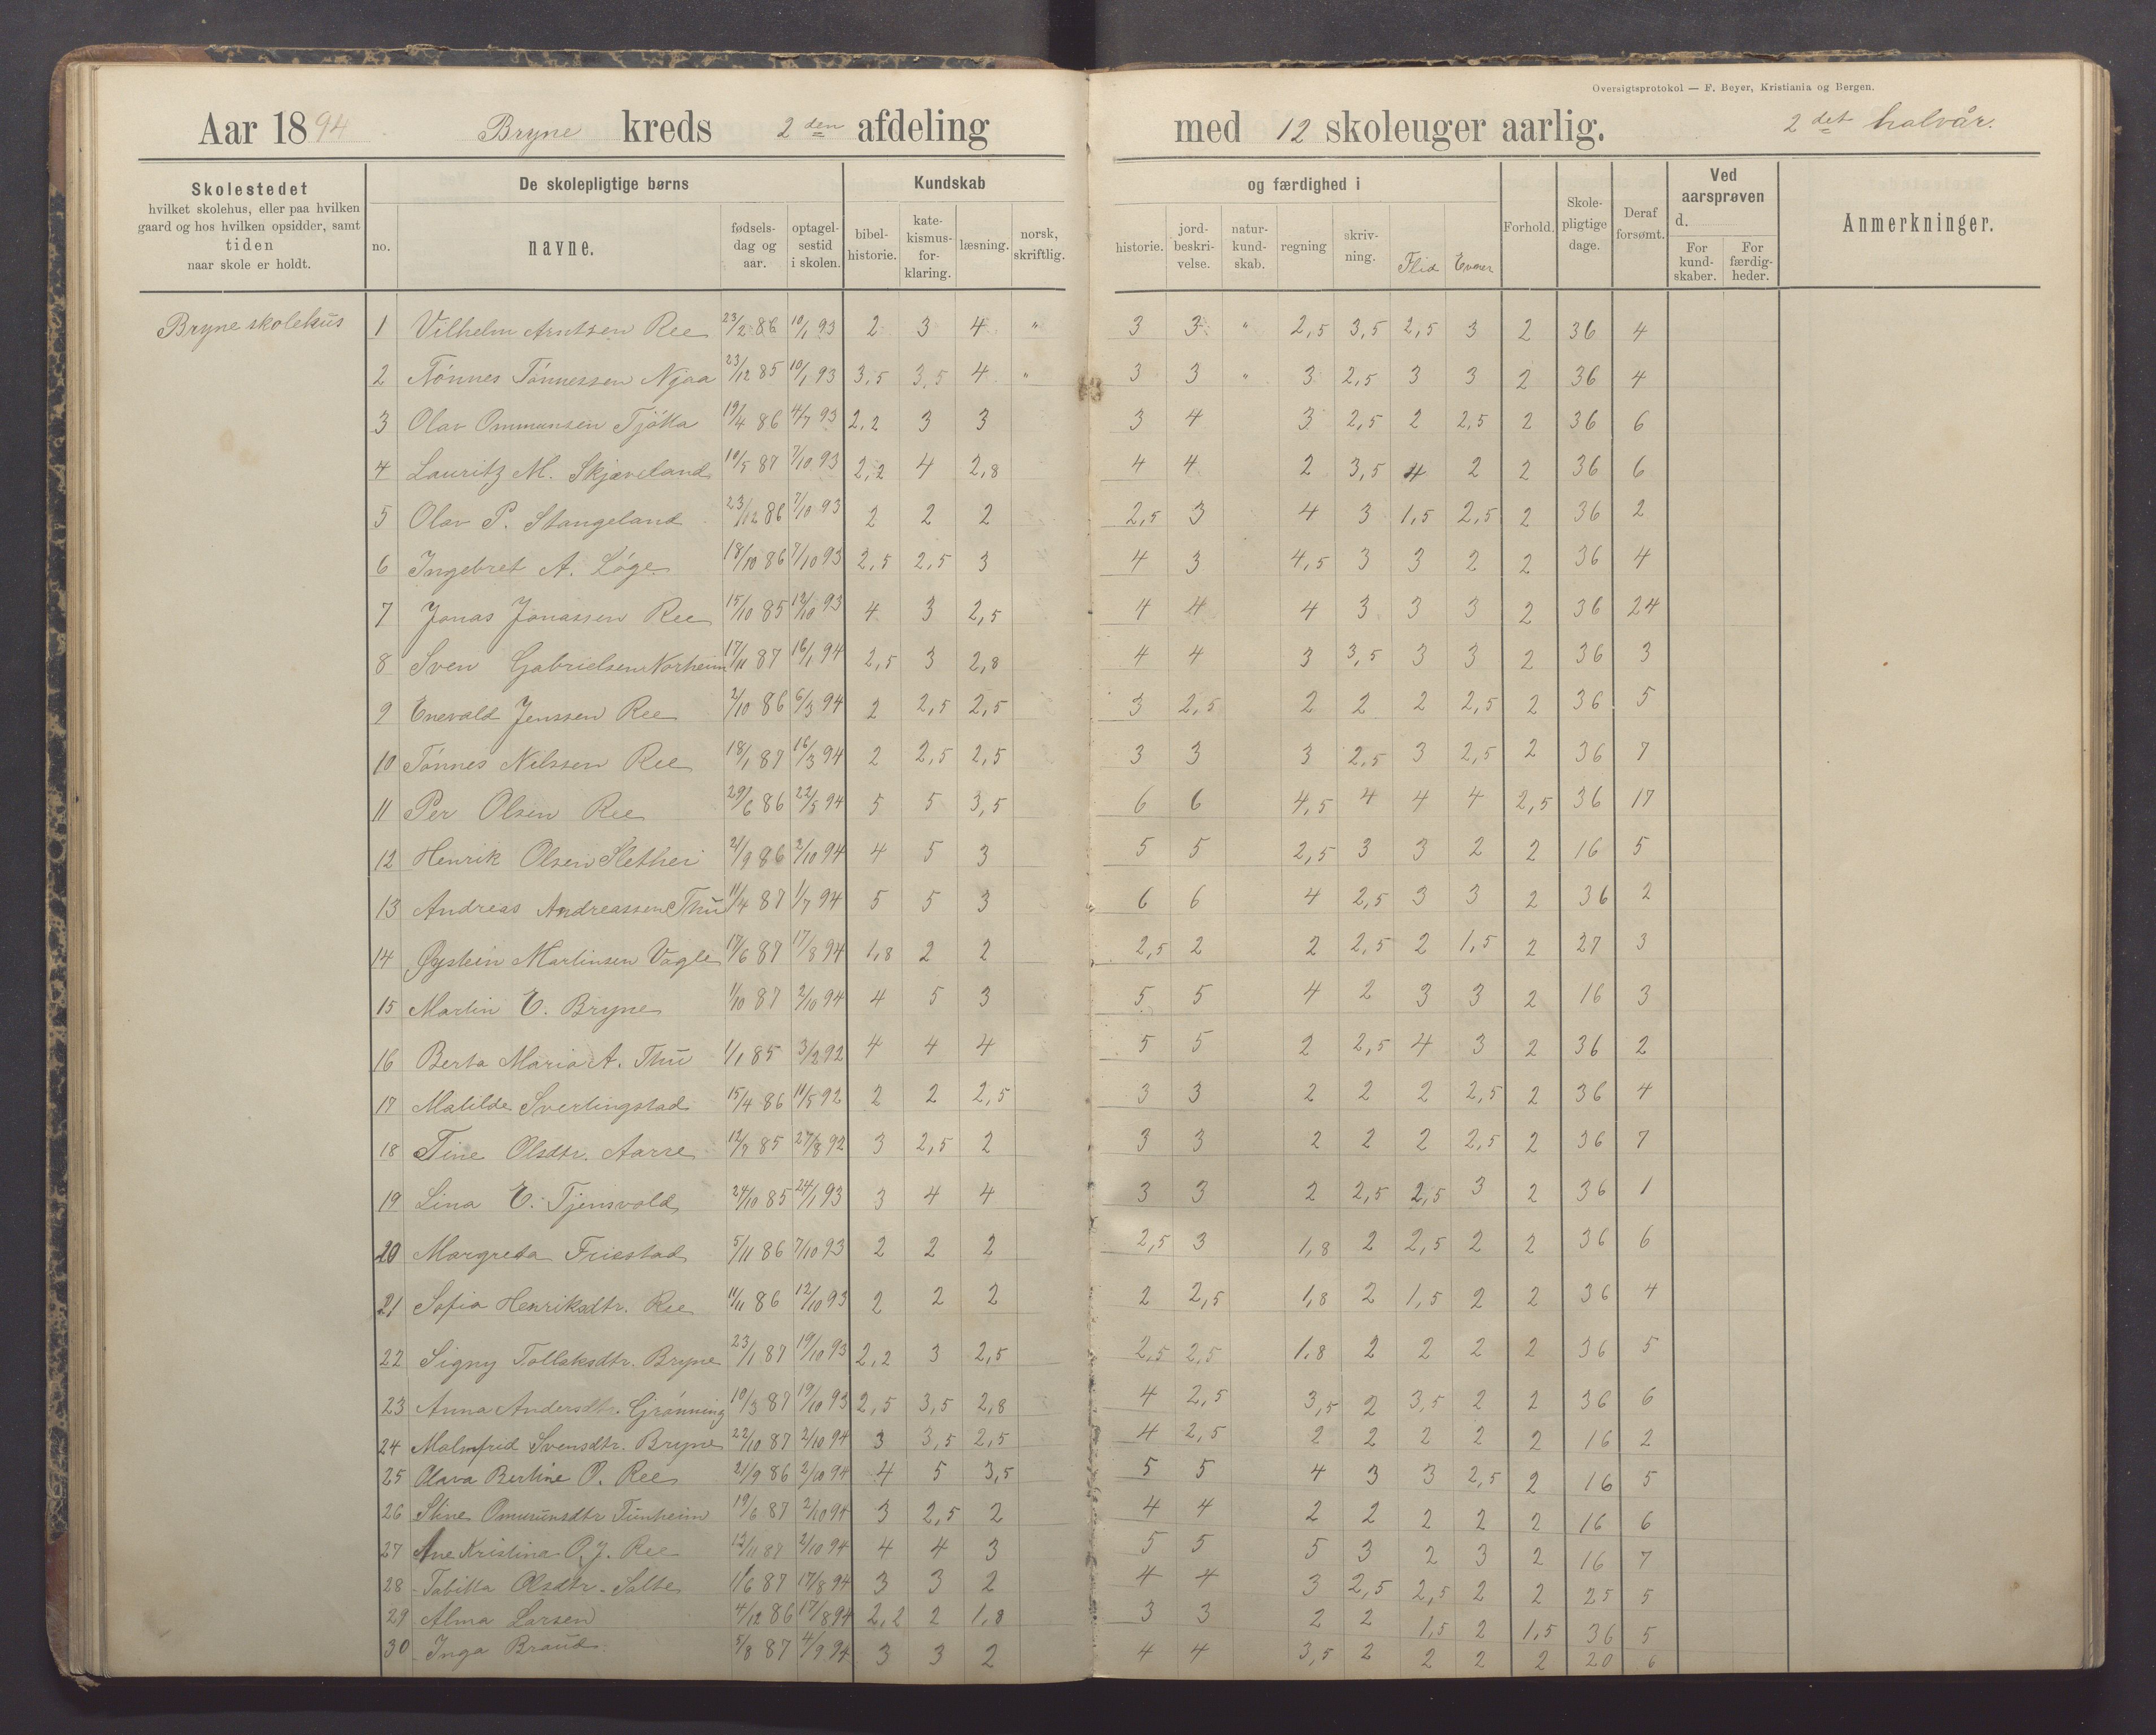 Oversigtsprotokol — F. Beyer, Kristiania og Bergen.
Aar 1894 Bryne kreds 2den afdeling med 12 skoleuger aarlig. 2det halvår.
Skolestedet hvilket skolehus, eller paa hvilken gaard og hos hvilken opsidder, samt tiden naar skole er holdt.
De skolepligtige børns
Kundskab og færdighed i
Ved aarsprøven d.
no. navne. fødsels-dag og aar. optagel-sestid i skolen. bibel-historie. kate-kismus-for-klaring. læsning. norsk, skriftlig. historie. jord-beskri-velse. natur-kund-skab. regning skriv-ning. Flid Evner Forhold. Skole-pligtige dage. Deraf forsømt. For kund-skaber. For færdig-heder. Anmerkninger.
Bryne skolehus
1 Vilhelm Arntzen Ree 23/2 86 10/1 93 2 3 4 " 3 3 " 2,5 3,5 2,5 3 2 36 4
2 Tønnes Tønnessen Njaa 23/12 85 10/1 93 3,5 3,5 4 " 3 3 " 3 2,5 3 3 2 36 4
3 Olav Ommunsen Tjøtta 19/4 86 4/7 93 2,2 3 3 3 4 3 2,5 2 2,5 2 36 6
4 Lauritz M. Skjæveland 10/5 87 7/10 93 2,2 4 2,8 4 4 2 3,5 4 2 2 36 6
5 Olav P. Stangeland 23/12 86 7/10 93 2 2 2 2,5 3 4 3 1,5 2,5 2 36 2
6 Ingebret A. Løge 18/10 86 7/10 93 2,5 2,5 3 4 3 4,5 3 3 2 2 36 4
7 Jonas Jonassen Ree 15/10 85 12/10 93 4 3 2,5 4 4 4 3 3 3 2 36 24
8 Sven Gabrielsen Norheim 17/11 87 16/1 94 2,5 3 2,8 4 4 3 3,5 3 3 2 36 3
9 Enevald Jenssen Ree 2/10 86 6/3 94 2 2,5 2,5 3 2,5 2 2 2 2,5 2 36 5
10 Tønnes Nilssen Ree 18/1 87 16/3 94 2 2,5 2,5 3 3 3 2,5 3 2,5 2 36 7
11 Per Olsen Ree 29/6 86 22/5 94 5 5 3,5 6 6 4,5 4 4 4 2,5 36 17
12 Henrik Olsen Slethei 21/9 86 2/10 94 4 5 3 5 5 2,5 3 3 2 2 16 5
13 Andreas Andreassen Thu 11/4 87 1/7 94 5 5 3 6 6 4 2,5 3 3 2 36 2
14 Øystein Martinsen Vagle 17/6 87 17/8 94 1,8 2 2 2,5 2 2 2,5 2 1,5 2 27 3
15 Martin E. Bryne 1/10 87 2/10 94 4 5 3 5 5 4 2 3 3 2 16 3
16 Berta Maria A. Thu 1/1 85 3/2 92 4 4 4 5 5 2 2,5 4 3 2 36 2
17 Matilde Sverlingstad 15/4 86 11/5 92 2 2 2,5 3 3 2 2 2 2,5 2 36 4
18 Tine Olsdtr. Aarre 12/7 85 27/8 92 3 2,5 2 3 3 2 2 2 2,5 2 36 7
19 Lina E. Tjensvold 24/10 85 24/1 93 3 4 4 3 3 2 2,5 2,5 3 2 36 1
20 Margreta Friestad 5/11 86 7/10 93 2 2 2 2,5 3 1,8 2 2,5 2 2 36 6
21 Sofia Henriksdtr. Ree 11/11 86 12/10 93 2 2 2 2 2,5 1,8 2 1,5 2 2 36 4
22 Signy Tollaksdtr. Bryne 23/1 87 19/10 93 2,2 3 2,5 2,5 2,5 1,8 2 2 2 2 36 5
23 Anna Andersdtr. Grønning 10/3 87 19/10 93 2,5 3,5 2,8 4 2,5 3,5 2 3,5 2 2 36 6
24 Malmfrid Svensdtr. Bryne 22/10 87 2/10 94 3 3,5 2,5 4 2,5 2 2 2 2 2 16 2
25 Olava Bertine O. Ree 21/9 86 2/10 94 4 5 3,5 5 5 4 3 3 2,5 2 16 5
26 Stine Omundsdtr Tunheim 19/6 87 2/10 94 3 2,5 2 4 4 2 2 2 2 2 16 6
27 Ane Kristina O. J. Ree 12/11 87 2/10 94 4 4 3 5 5 5 3 2 3 2 16 7
28 Tabitta Olsdtr. Salte 1/6 87 17/8 94 3 3 2 4 4 3 2,5 2,5 2 2 25 5
29 Alma Larsen 4/12 86 17/8 94 2,2 2 1,8 3 3 2 2 1,5 2 1,5 36 5
30 Inga Braud 5/8 87 4/9 94 3 3 2 4 4 3,5 2 2 2 2 20 6